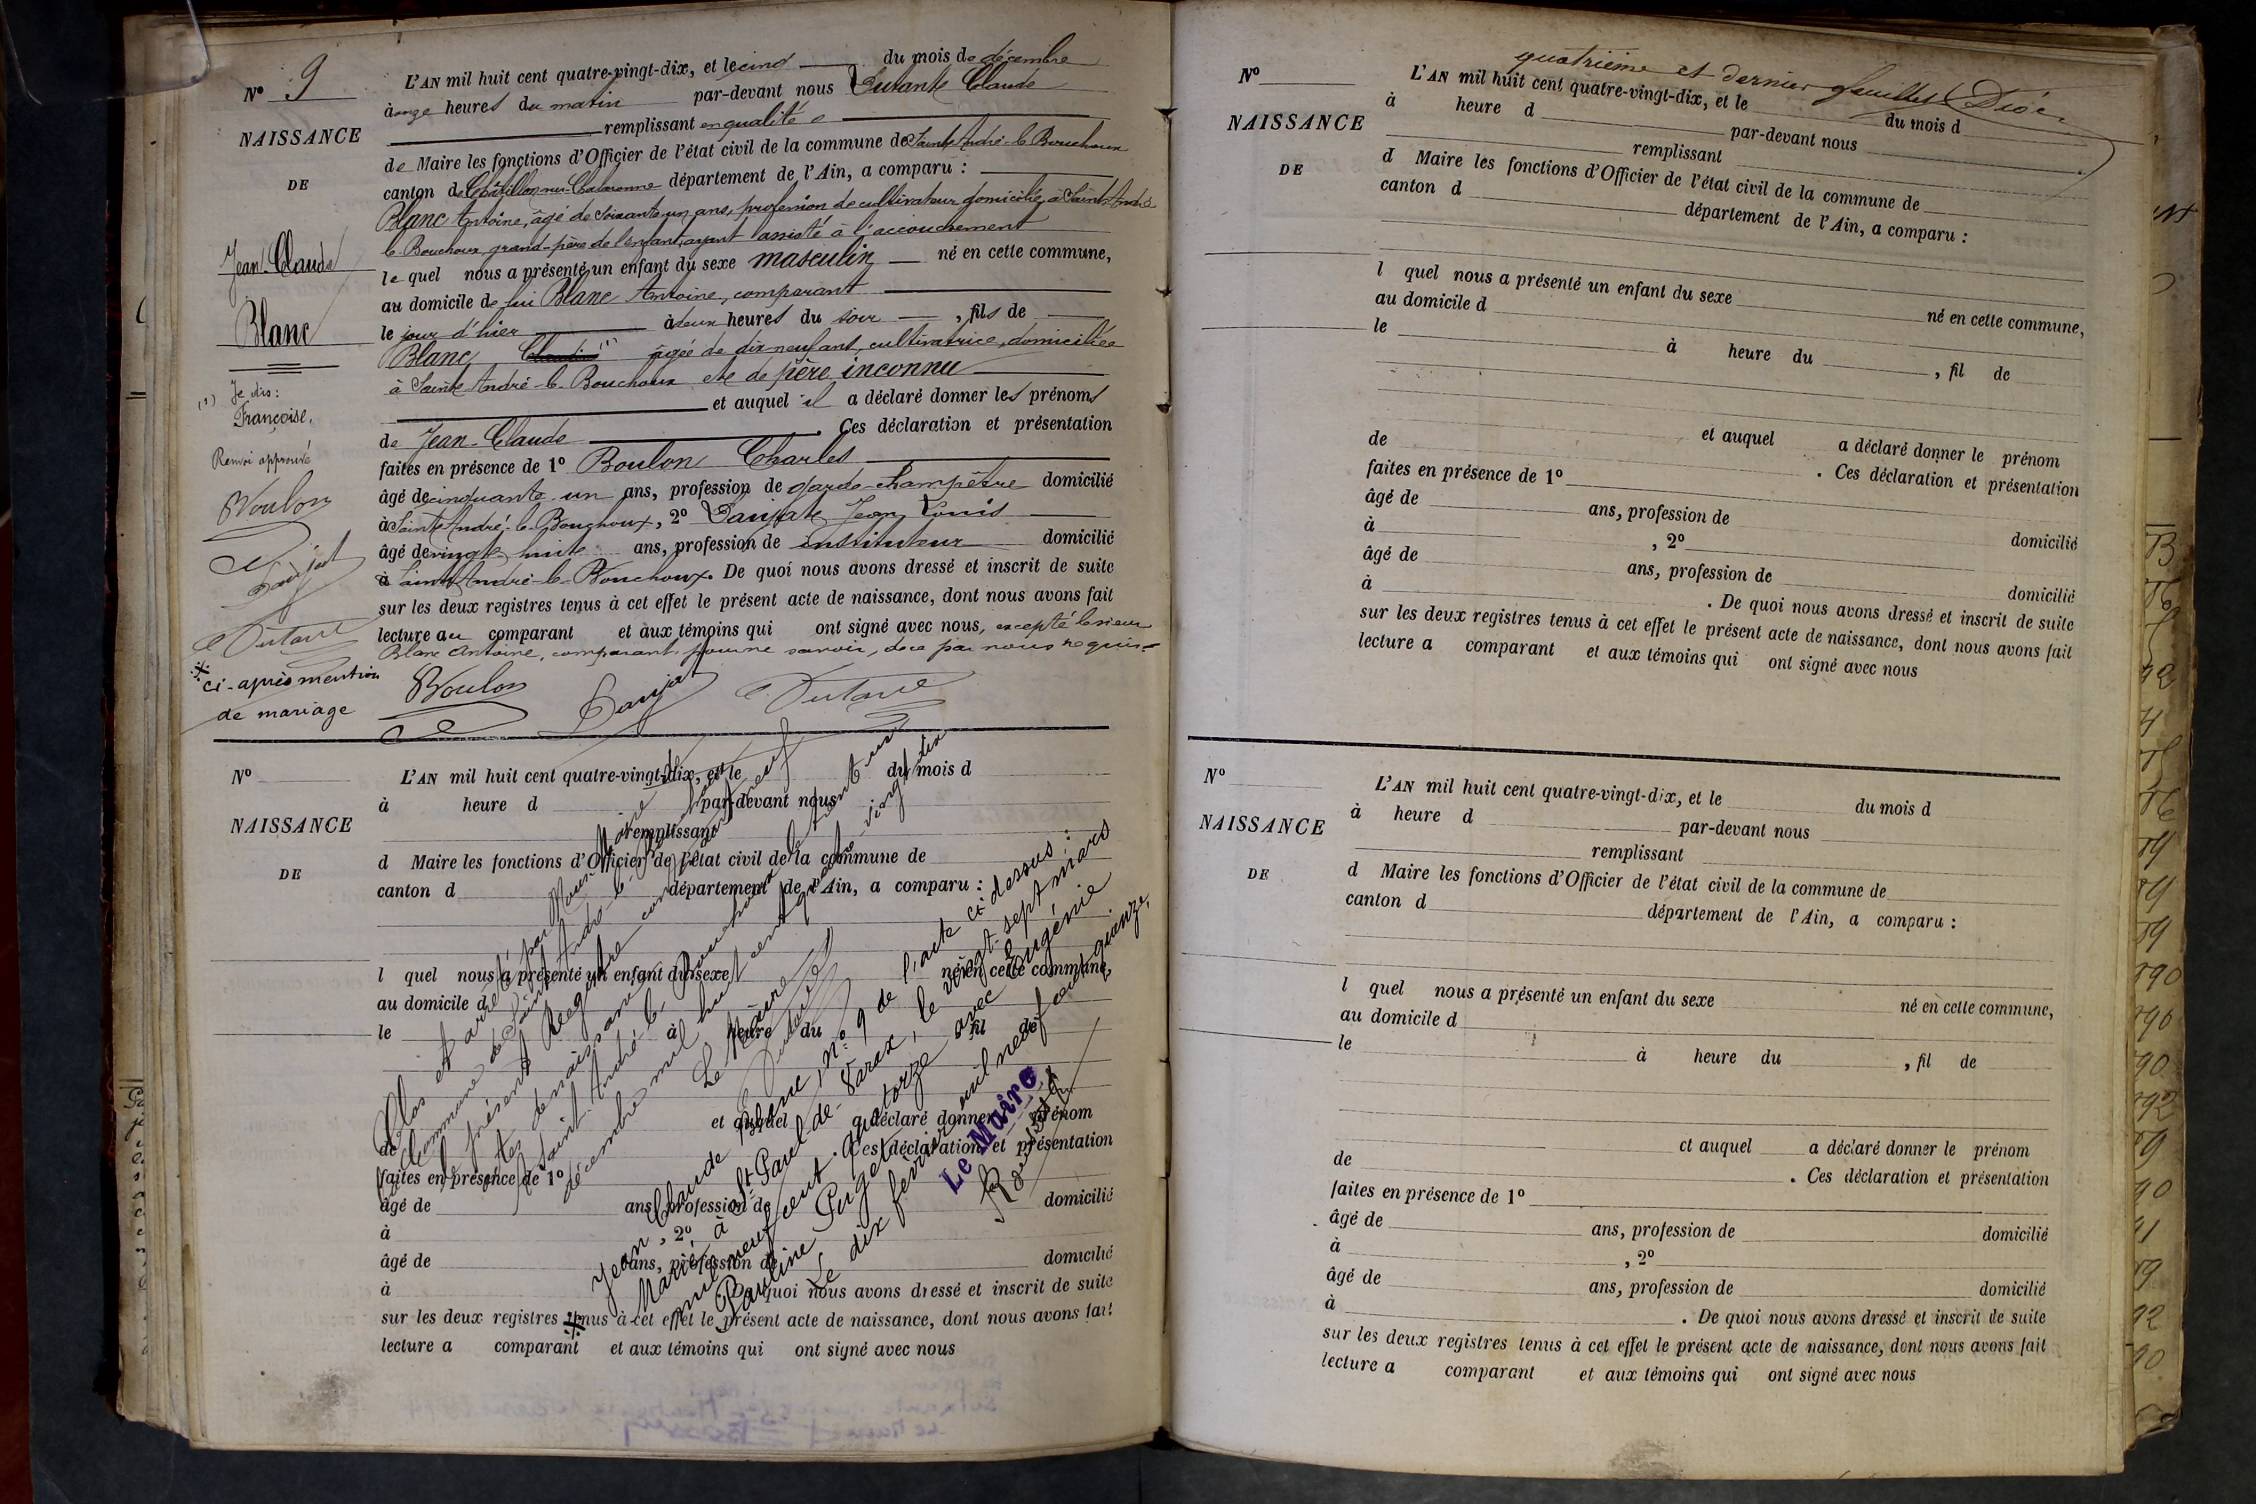 N° 9
NAISSANCE
DE
Jean-Claude
Blanc
(1) Je dis:
Françoise.
Renvoi approuvé
Boulon
Danjat
Dutane
※ ci-après mention
de mariage
L'AN mil huit cent quatre-vingt-dix, et le cinq du mois de décembre
à onze heures du matin par-devant nous Claude
remplissant en qualité
de Maire les fonctions d'Officier de l'état civil de la commune de Saint-André-le-Bouchoux
canton de Châtillon-sur-Chalaronne département de l'Ain, a comparu :
Blanc Antoine, âgé de soixante un ans, profession de cultivateur domicilié à Saint-André
le Bouchoux grand-père de l'enfant, ayant assisté à l'accouchement
le quel nous a présenté un enfant du sexe masculin né en cette commune,
au domicile de lui Blanc Antoine, comparant
le jour d'hier à deux heures du soir , fils de
Blanc (1) âgée de dix-neuf ans, cultivatrice, domiciliée
à Saint André-le-Bouchoux et de père inconnu
et auquel il a déclaré donner les prénoms
de Jean-Claude . Ces déclaration et présentation
faites en présence de 1° Boulon Charles
âgé de cinquante-un ans, profession de garde-champêtre domicilié
à Saint André-le-Bouchoux, 2° Jean Louis
âgé de vingt-huit ans, profession de instituteur domicilié
à Saint-André-le-Bouchoux. De quoi nous avons dressé et inscrit de suite
sur les deux registres tenus à cet effet le présent acte de naissance, dont nous avons fait
lecture au comparant et aux témoins qui ont signé avec nous, excepté le sieur
Blanc Antoine, comparant pour ne savoir, de ce par nous requis
Boulon Danjat Dutane
N°
NAISSANCE
DE
L'AN mil huit cent quatre-vingt-dix, et le du mois d
à heure d par-devant nous
remplissant
d Maire les fonctions d'Officier de l'état civil de la commune de
canton d département de l'Ain, a comparu :
l quel nous a présenté un enfant du sexe né en cette commune,
au domicile d
le à heure du , fil de
et auquel a déclaré donner le prénom
de . Ces déclaration et présentation
faites en présence de 1°
âgé de ans, profession de domicilié
à , 2°
âgé de ans, profession de domicilié
à . De quoi nous avons dressé et inscrit de suite
sur les deux registres tenus à cet effet le présent acte de naissance, dont nous avons fait
lecture a comparant et aux témoins qui ont signé avec nous
Clos et arrêté par Nous, Maire de
la Commune de Saint André-le-Bouchoux
le présent Registre comprenant neuf
actes de naissance
à Saint-André-le-Bouchoux le trente-un
décembre mil huit cent quatre-vingt-dix
Le Maire
Dutane
※ Jean Claude Blanc, n° 9 de l'acte ci-dessus :
Marié à St Paul-de-Varax, le vingt-sept mars
mil neuf cent quatorze avec Eugénie
Pauline Puget.
Le dix février mil neuf cent quinze,
Le Maire
quatrième et dernier feuillet
N°
NAISSANCE
DE
L'AN mil huit cent quatre-vingt-dix, et le du mois d
à heure d par-devant nous
remplissant
d Maire les fonctions d'Officier de l'état civil de la commune de
canton d département de l'Ain, a comparu :
l quel nous a présenté un enfant du sexe né en cette commune,
au domicile d
le à heure du , fil de
et auquel a déclaré donner le prénom
de . Ces déclaration et présentation
faites en présence de 1°
âgé de ans, profession de domicilié
à , 2°
âgé de ans, profession de domicilié
à . De quoi nous avons dressé et inscrit de suite
sur les deux registres tenus à cet effet le présent acte de naissance, dont nous avons fait
lecture a comparant et aux témoins qui ont signé avec nous
N°
NAISSANCE
DE
L'AN mil huit cent quatre-vingt-dix, et le du mois d
à heure d par-devant nous
remplissant
d Maire les fonctions d'Officier de l'état civil de la commune de
canton d département de l'Ain, a comparu :
l quel nous a présenté un enfant du sexe né en cette commune,
au domicile d
le à heure du , fil de
et auquel a déclaré donner le prénom
de . Ces déclaration et présentation
faites en présence de 1°
âgé de ans, profession de domicilié
à , 2°
âgé de ans, profession de domicilié
à . De quoi nous avons dressé et inscrit de suite
sur les deux registres tenus à cet effet le présent acte de naissance, dont nous avons fait
lecture a comparant et aux témoins qui ont signé avec nous